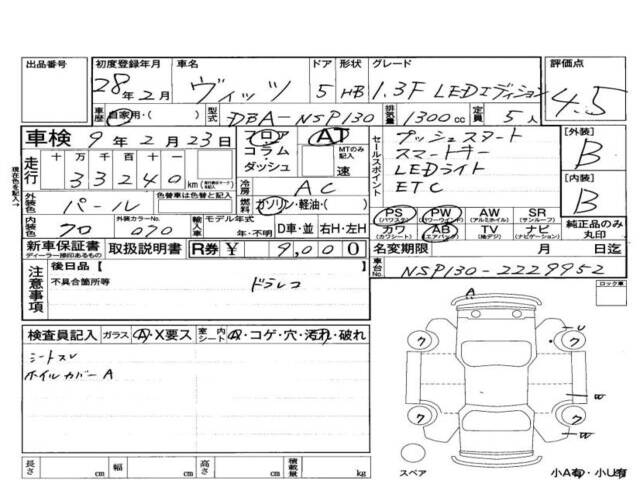 出品番号 初度登録年月 車名 ドア 形状 グレード 評価点
28年2月 ヴィッツ 5 HB 1.3F LEDエディション 4.5
車歴 自家用・( ) 型式 DBA-NSP130 排気量 1300cc 定員 5人
車検 9年2月23日 フロア AT セールスポイント プッシュスタート [外装]
コラム MTのみ記入 スマートキー B
ダッシュ 速 LEDライト
走行 十万千百十一 ETC [内装]
33240km 冷房 AC B
現在色を記入→
外装色 パール 色替車は色替と記入 燃料 ガソリン・軽油・( )
PS (パワステ) PW (パワーウィンド) AW (アルミホイル) SR (サンルーフ) 純正品のみ丸印
内装色 70 外装カラーNo. 070 輸入車 モデル年式 年・不明 D車・並 右H・左H
カワ (カワシート) AB (エアバック) TV (純デジ) ナビ (ナビゲーション)
新車保証書 ディーラー捺印あるもの 取扱説明書 R券 ¥ 9,000 名変期限 月 日迄
注意事項 後日品 [ ] 車台No. NSP130-2229952
不具合箇所等 ドラレコ
ロック車
A
検査員記入 ガラス A・X要ス 室内シート A・コゲ・穴・汚れ・破れ
U
シートスレ
ホイルカバーA
ク ク
W
ク ク
W
長さ cm 幅 cm 高さ cm 積載量 kg
スペア 小A有・小U有